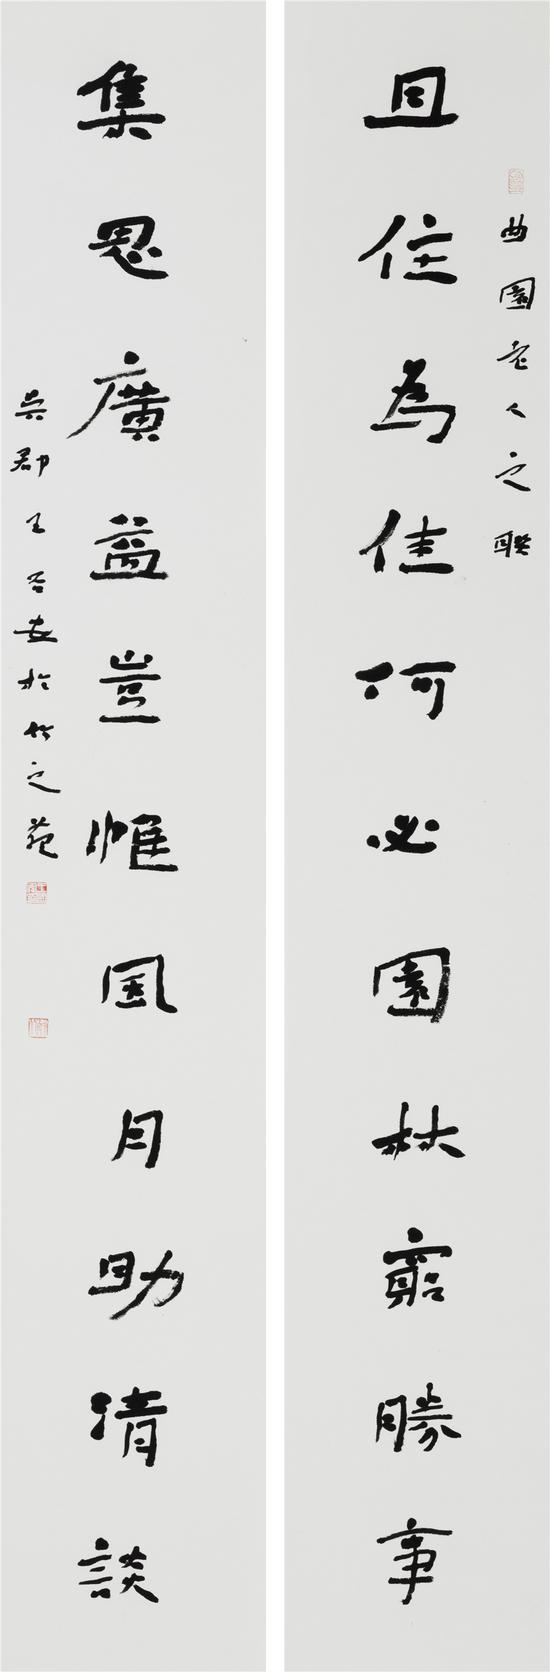 曲園老人之聯
且住為佳何必園林窮勝事
集思廣益豈惟風月助清談
吳郡王 於竹之苑